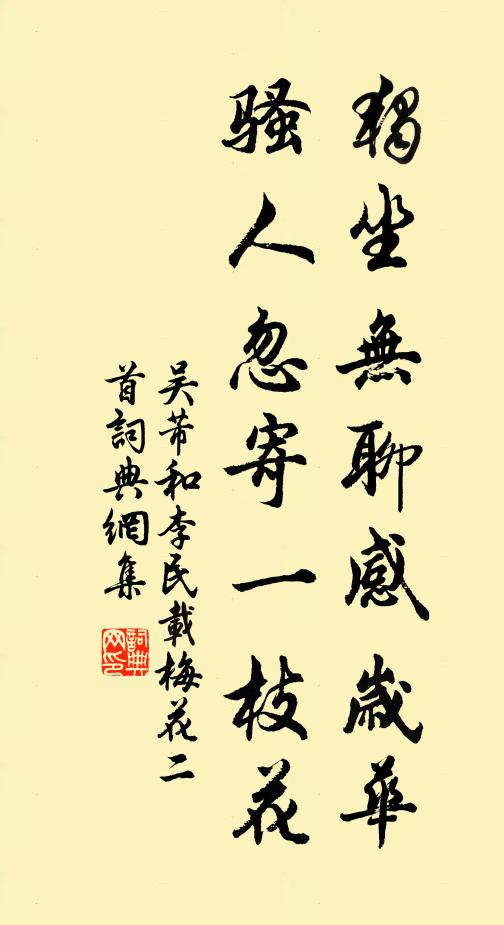 獨坐無聊感歲華
騷人忽寄一枝花
吴芾和李民載梅花二
首詞典網集
詞典
网印